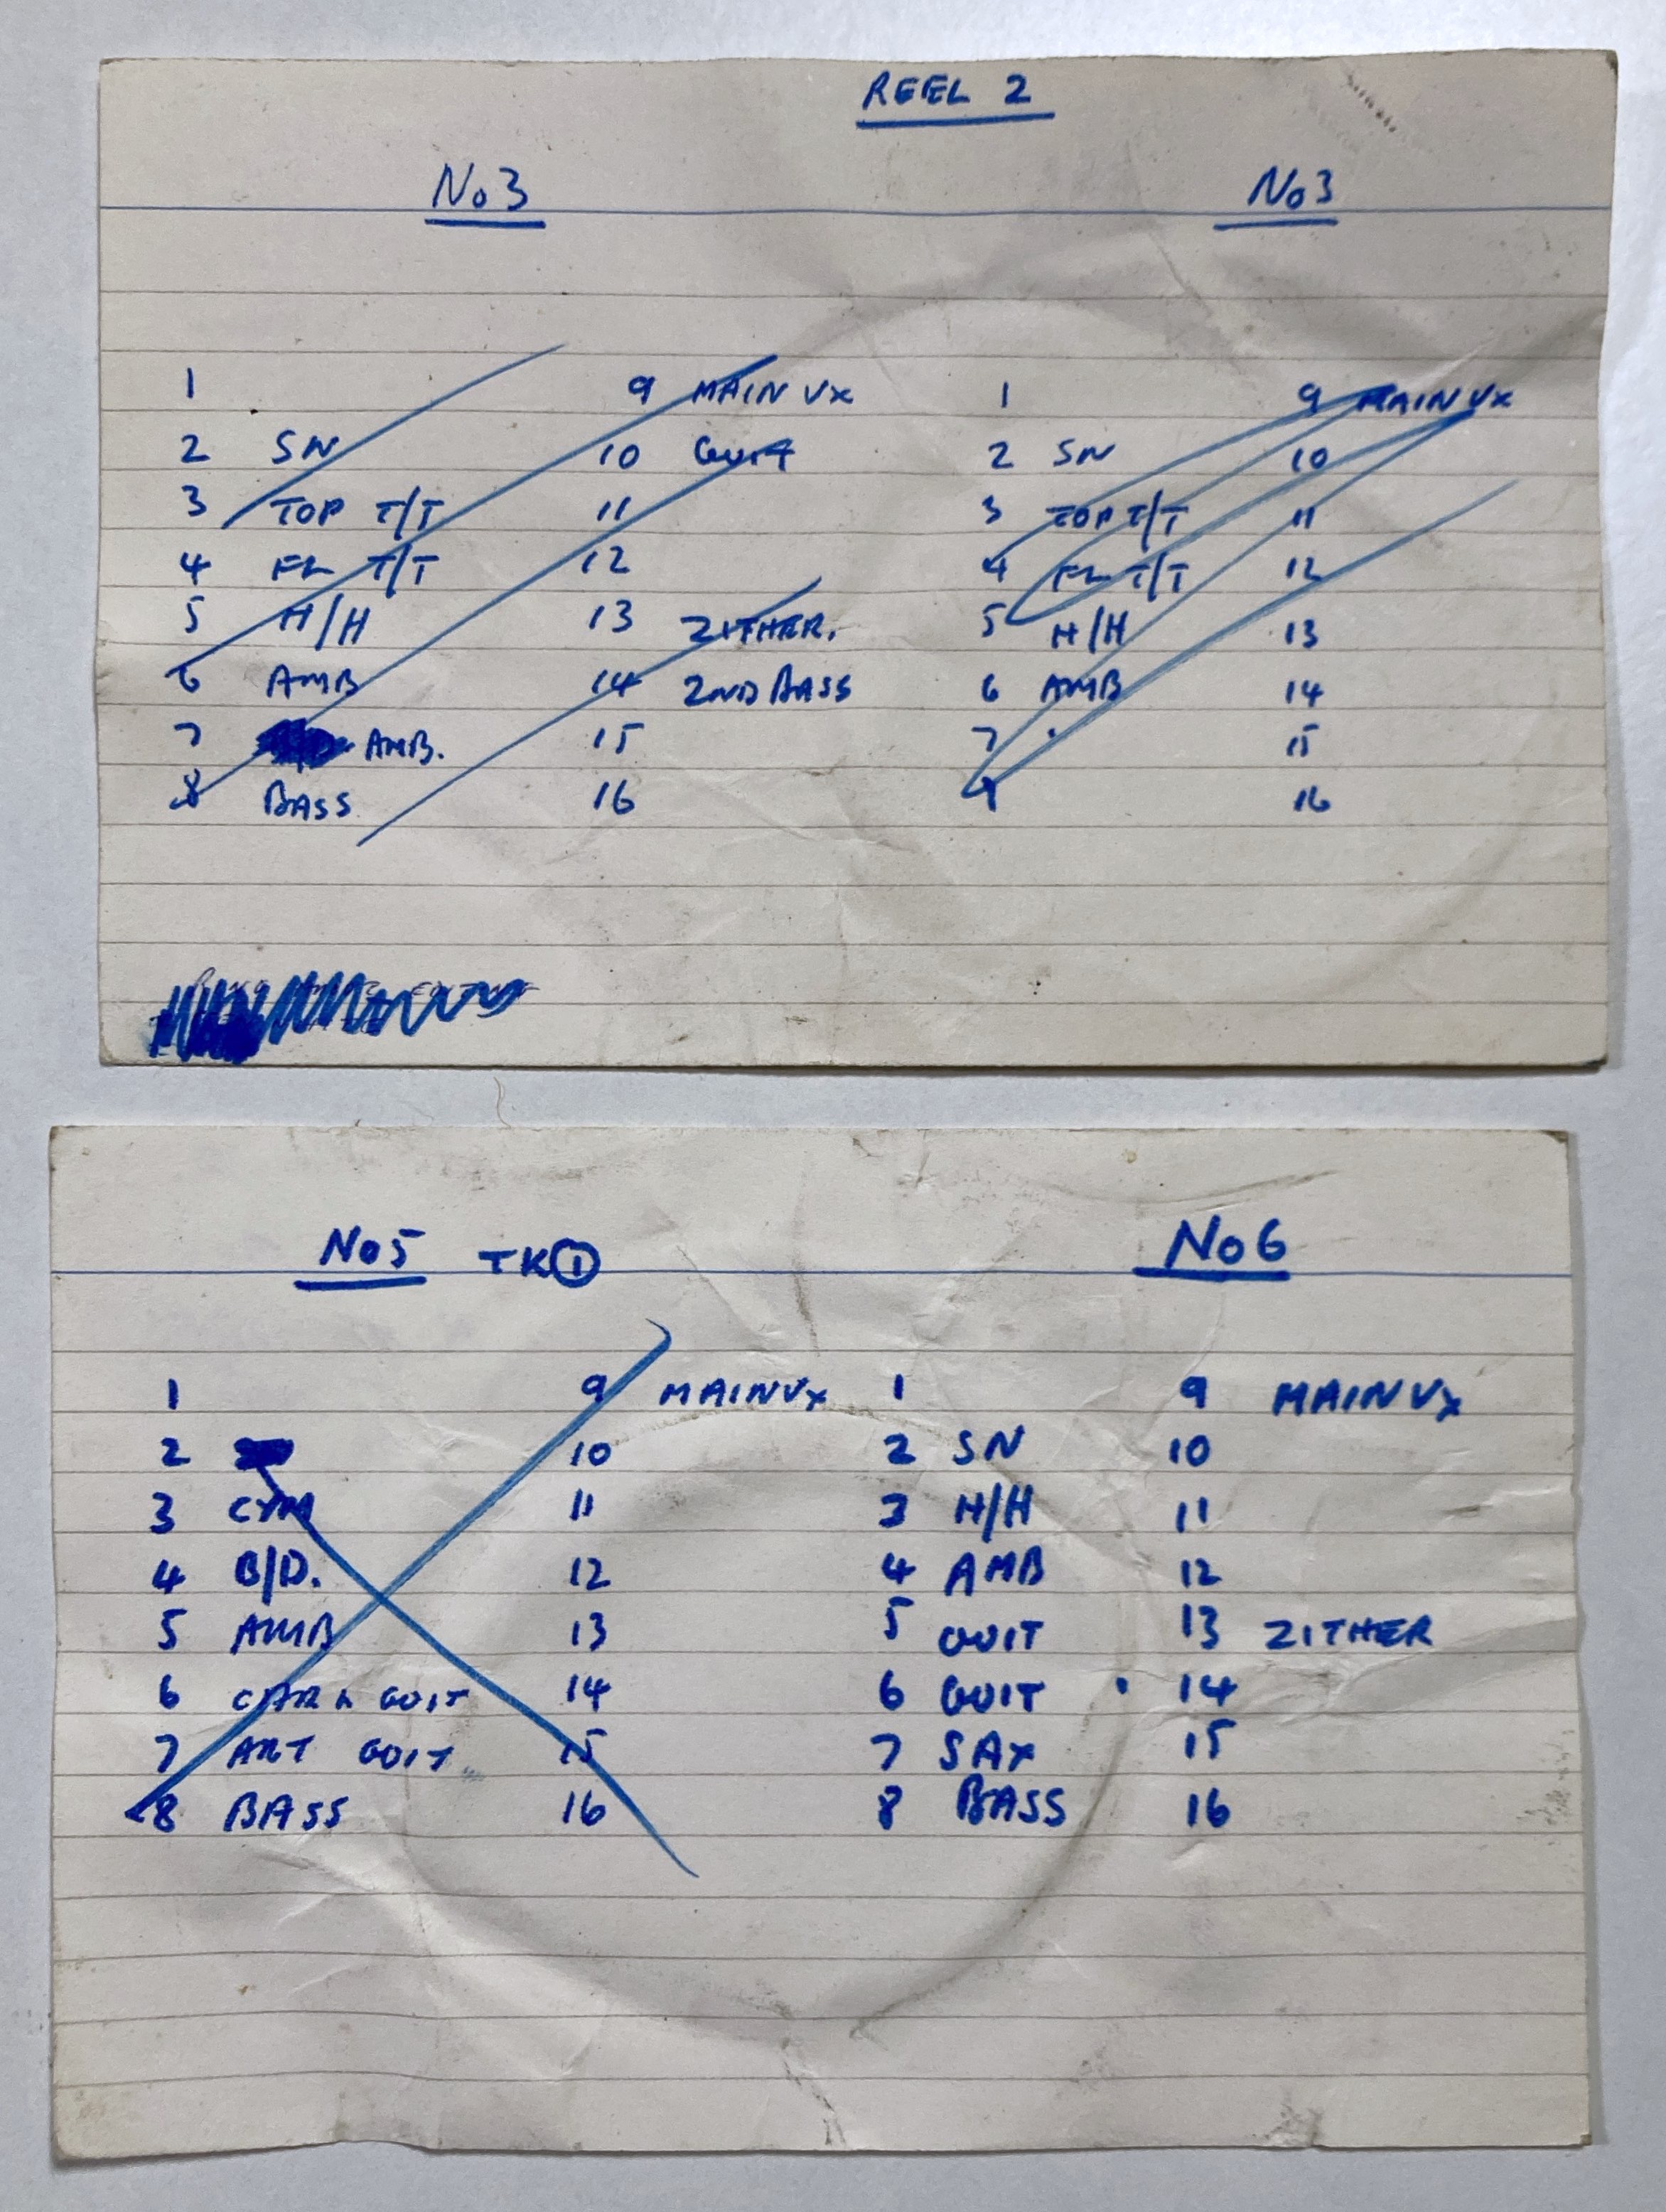 REEL 2
No 3
1
2 SN
3 TOP T/T
4 FL T/T
5 H/H
6 AMB
7 AMB.
8 BASS
9 MAIN VX
10 GUIT
11
12
13 ZITHER.
14 2ND BASS
15
16
No 3
1
2 SN
3 TOP T/T
4 FL T/T
5 H/H
6 AMB
7
9 MAIN VX
10
11
12
13
14
15
16
No 5 TK ①
1
2
3 CYM
4 B/D.
5 AMB
6 GUIT
7 ART GUIT
8 BASS
9 MAIN VX
10
11
12
13
14
15
16
No 6
1
2 SN
3 H/H
4 AMB
5 GUIT
6 GUIT
7 SAX
8 BASS
9 MAIN VX
10
11
12
13 ZITHER
14
15
16